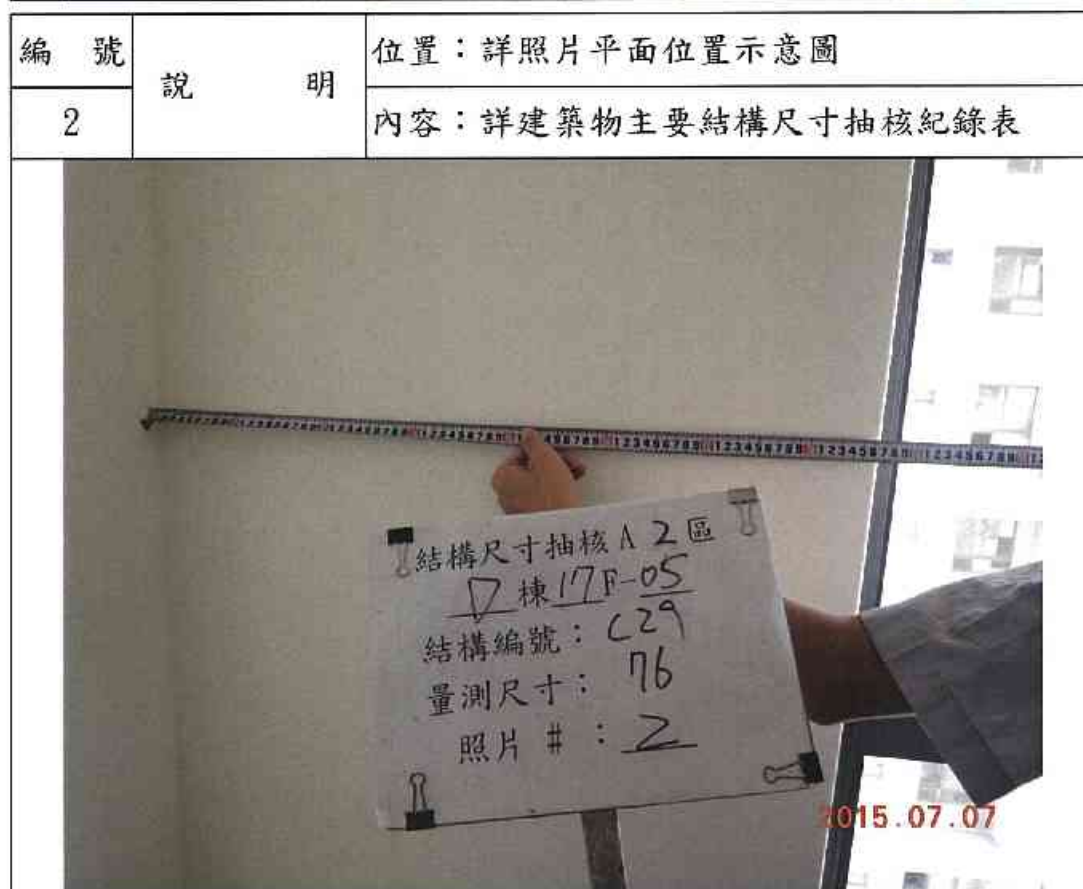 編 號
說 明
位置：詳照片平面位置示意圖
2
內容：詳建築物主要結構尺寸抽核紀錄表
結構尺寸抽核 A 2 區
D 棟 17F-05
結構編號：C29
量測尺寸：76
照片 #：2
2015.07.07